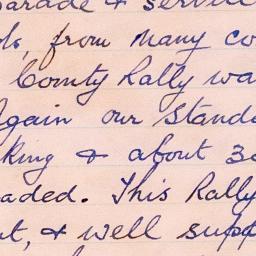 parade & servic
ls, from many co
County Rally wa
Again our Standa
king & about 30
aded. This Rally
t, & well supp